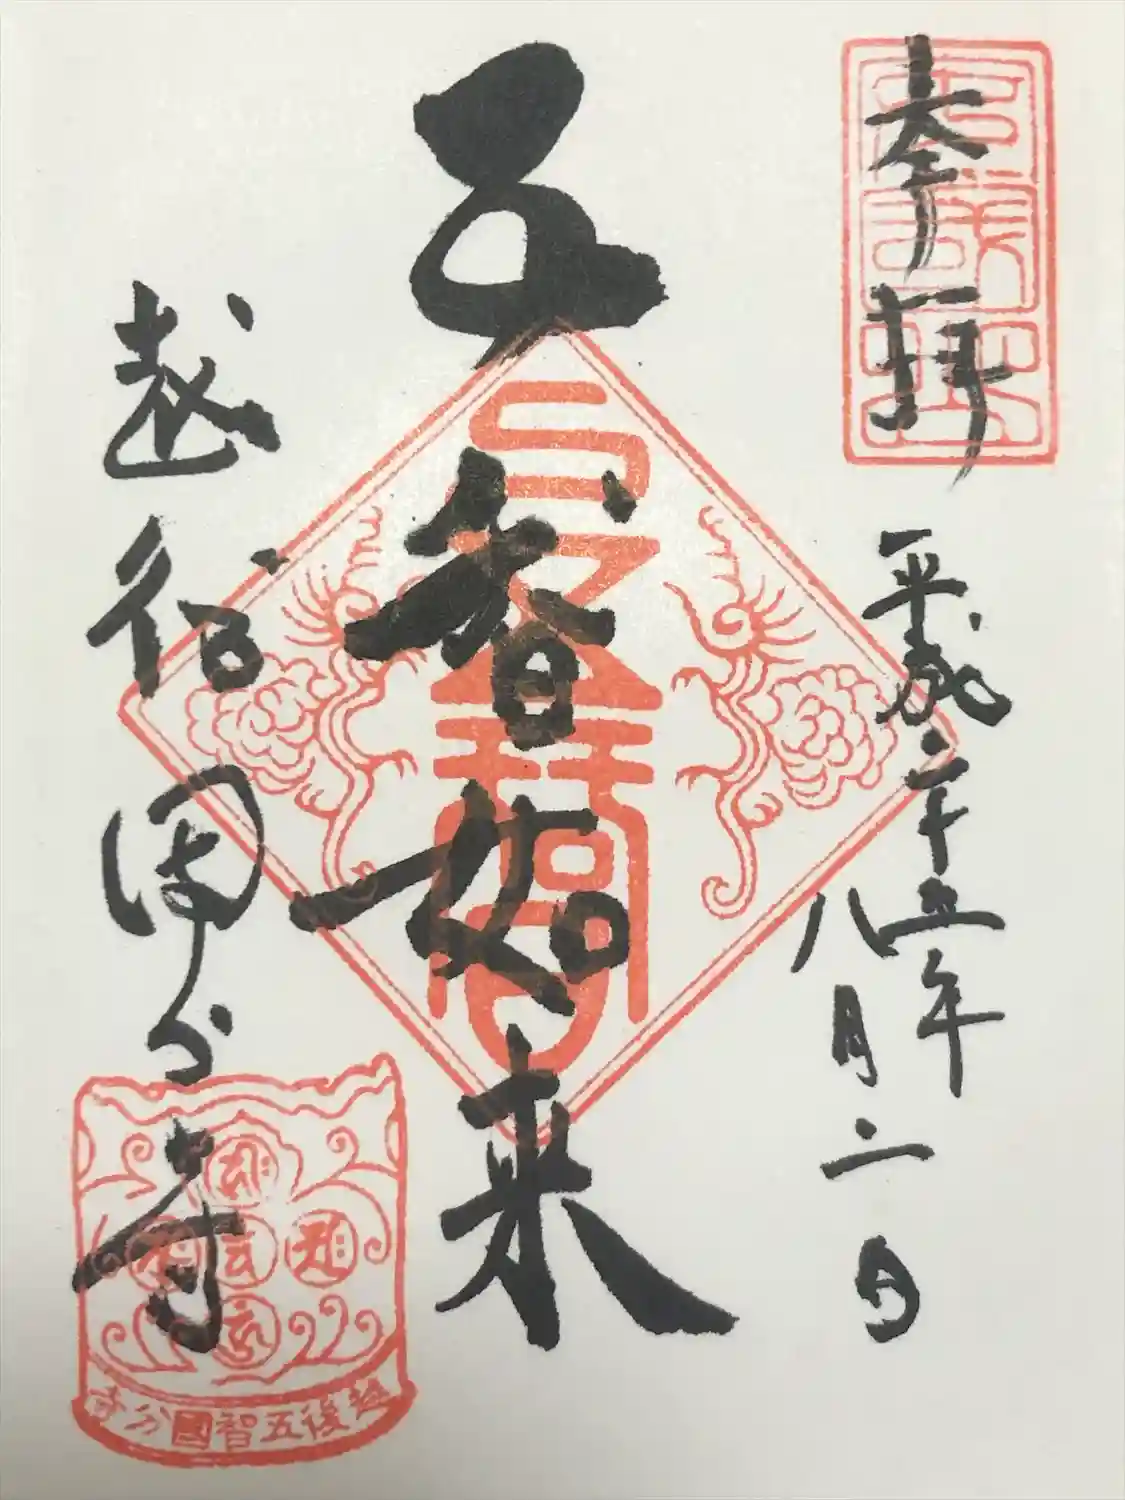 奉拝
平成二十五年
八月二日
五智如来
越後國分寺
越後五智國分寺